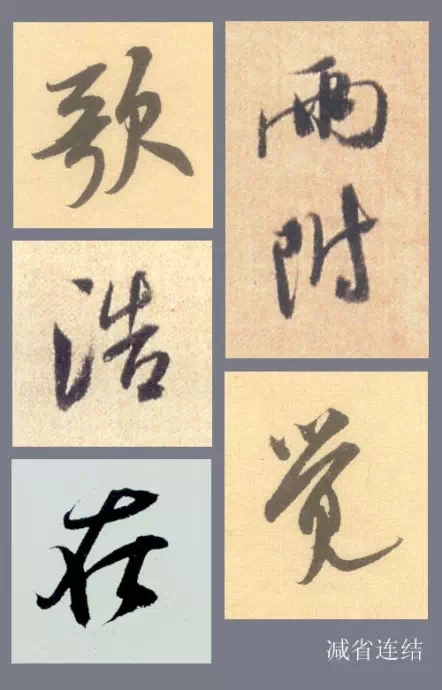 歌
浩
在
雨附
觉
减省连结